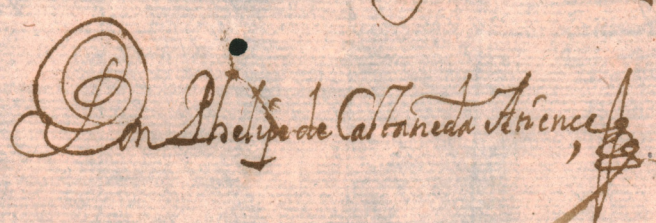 Don Phelipe de Castaneda Atience